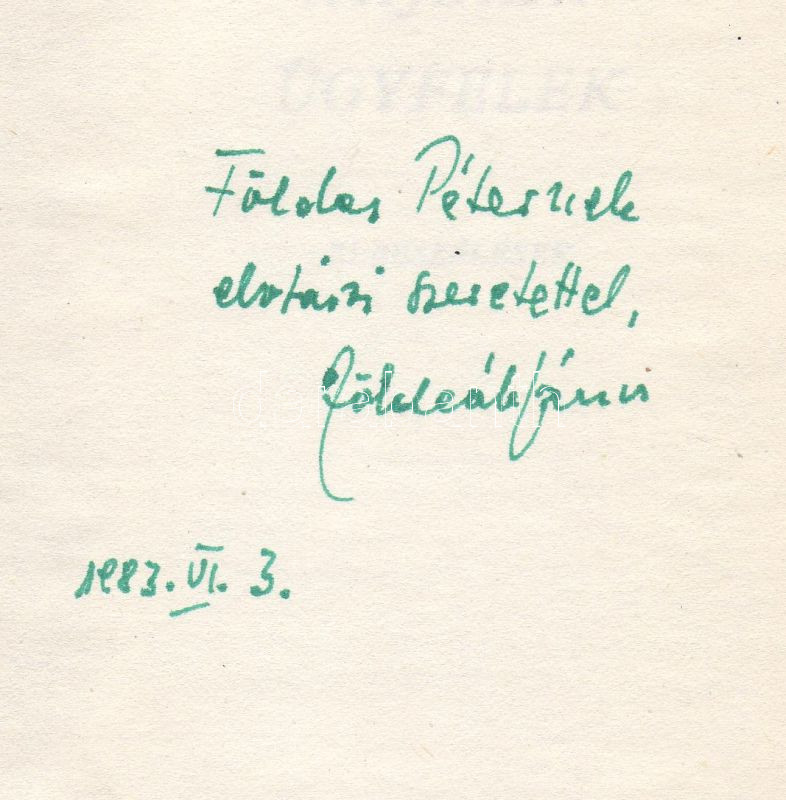 ÜGYFELEK
Földes Péternek
elvtársi szeretettel,
Földeák János
1983. VI. 3.